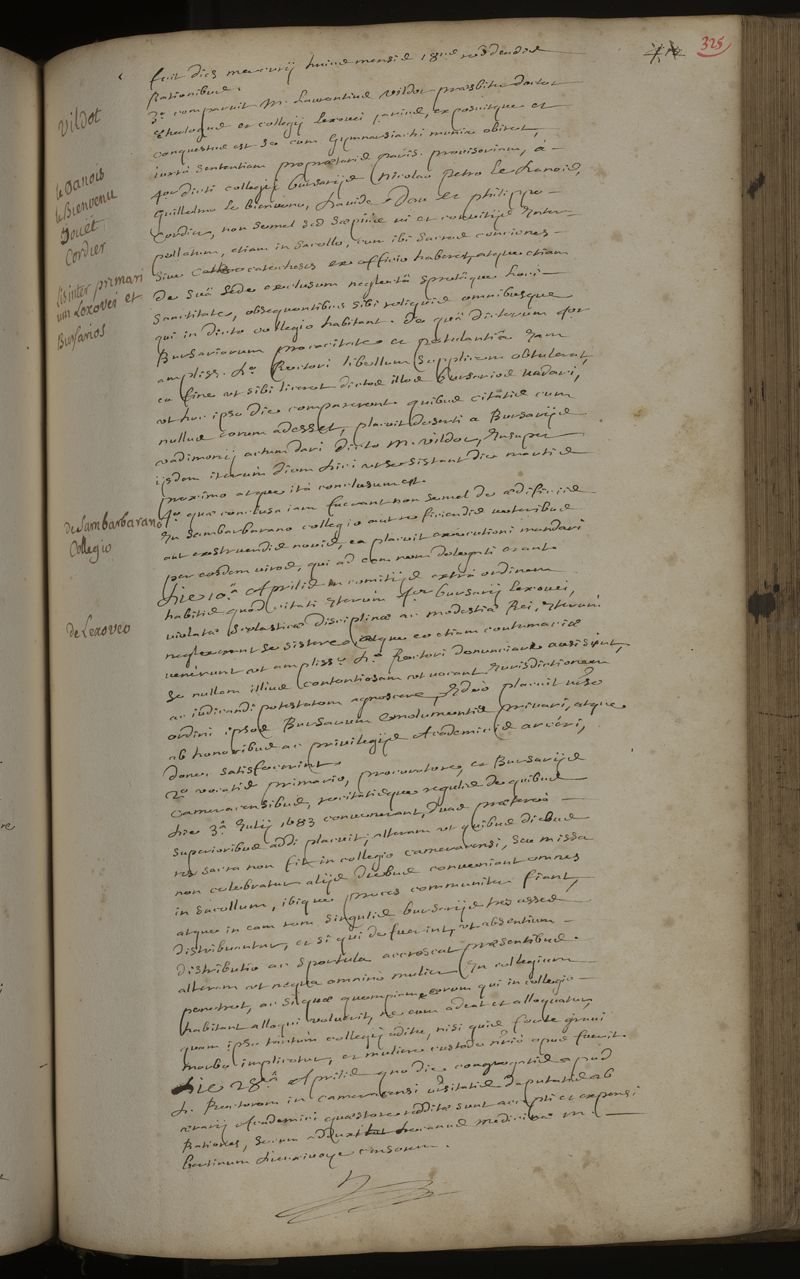 325
fuit dies mercurij huius mensis 18us reddendis
Rationibus.
3o comparuit M. Laurentius Vildot presbiter doctor
theologus et collegij Lexovei primar, exposuitque et
conquestus est se cum Gymnasiarchi munia obiret,
iuxta sententiam propraetoris paris. provisoriam, a
4or dicti collegij bursarijs Nicolao Petro le Danois,
Guillelmo le bienvenu, Davide Dou et philippo
Cordier, non semel sed saepius vi et convitijs inter-
pellatum, etiam in sacello, cum ibi sacras conciones
sive catecheses ex officio haberet, atque etiam
de suâ sede exclusum neglectâ spretâque loci
sanctitate, obsequentibus sibi reliquis omnibusque
qui in dicto collegio habitant. De quâ dictorum 4or
Bursariorum procacitate et petulantiâ iam
ampliss. D. Rectori libellum supplicem obtulerat,
eo fine ut sibi liceret dictos illos bursarios vadari,
ut hoc ipso die comparerent quibus citatis cum
nullus eorum adesset, placuit deserti a Bursarijs
vadimonij actum dari dicto M. Vildot, insuper
ijsdem iterum diem dici ut se sistant die martis
proximo atque ita conclusum est.
4o quae conclusa iam fuerant non semel de aedificijs
in Sambarbarano collegio aut reficiendis veteribus
aut exstruendis novis, ea placuit executioni mandari
per eosdem viros, qui ad eam rem delegati erant.
Die 10a Aprilis in comitijs extra ordinem
habitis quod citati iterum 4or bursarij Lexovei,
violatae scholasticae disciplinae ac modestiae Rei, iterum
neglexerunt se sistere, atque eo etiam contumaciae
venerunt ut ampliss. D. Rectori denunciare ausi sint,
se nullam illius contentiosam ut vocant iurisdictionem
ac iudicandi potestatem agnoscere, ideo placuit
ordini ipsos Bursarum emolumentis privari, atque
ab honoribus ac privilegijs Academicis arceri,
donec satisfecerint.
2o vocatis primario, procuratore, et Bursarijs
Cameracensibus, recitatisque regulis de quibus
die 3a Julij 1683 convenerant, duas praeterea
superioribus addi placuit, alteram ut quibus diebus
res sacra non fit in collegio cameracensi, seu missa
non celebratur alijs diebus conveniant omnes
in sacellum, ibique preces communiter fiant,
atque in eam rem singulis bursarijs tres asses
distribuantur, et si qui defuerint, ut absentium
distributio ac sportula accrescat praesentibus.
alteram ut nequa omnino mulier in collegium
penetret, ac siquae quempiam eorum qui in collegio
habitant alloqui voluerit, ne eum adeat et alloquatur,
quam ipso tantum collegij aditu, nisi quis forte gravi
morbo implicetur, et muliere custode opus fuerit.
Die 28a Aprilis quo die congregatis apud
D. Rectorem in cameracensi deputatis ab
aerarij Academici quaestore redditae sunt accepti et expensi
Rationes, secum adduxit decanus medicinae M.
censorem.
Vildot
le Danois
le Bienvenu
Douët
Cordier
Lis inter primari
um Lexovei et
Bursarios
de Sambarbarano
Collegio
de Lexoveo